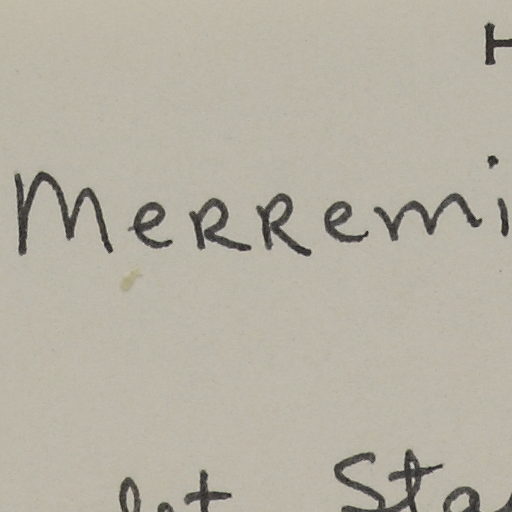 H
Merremi
let Sta